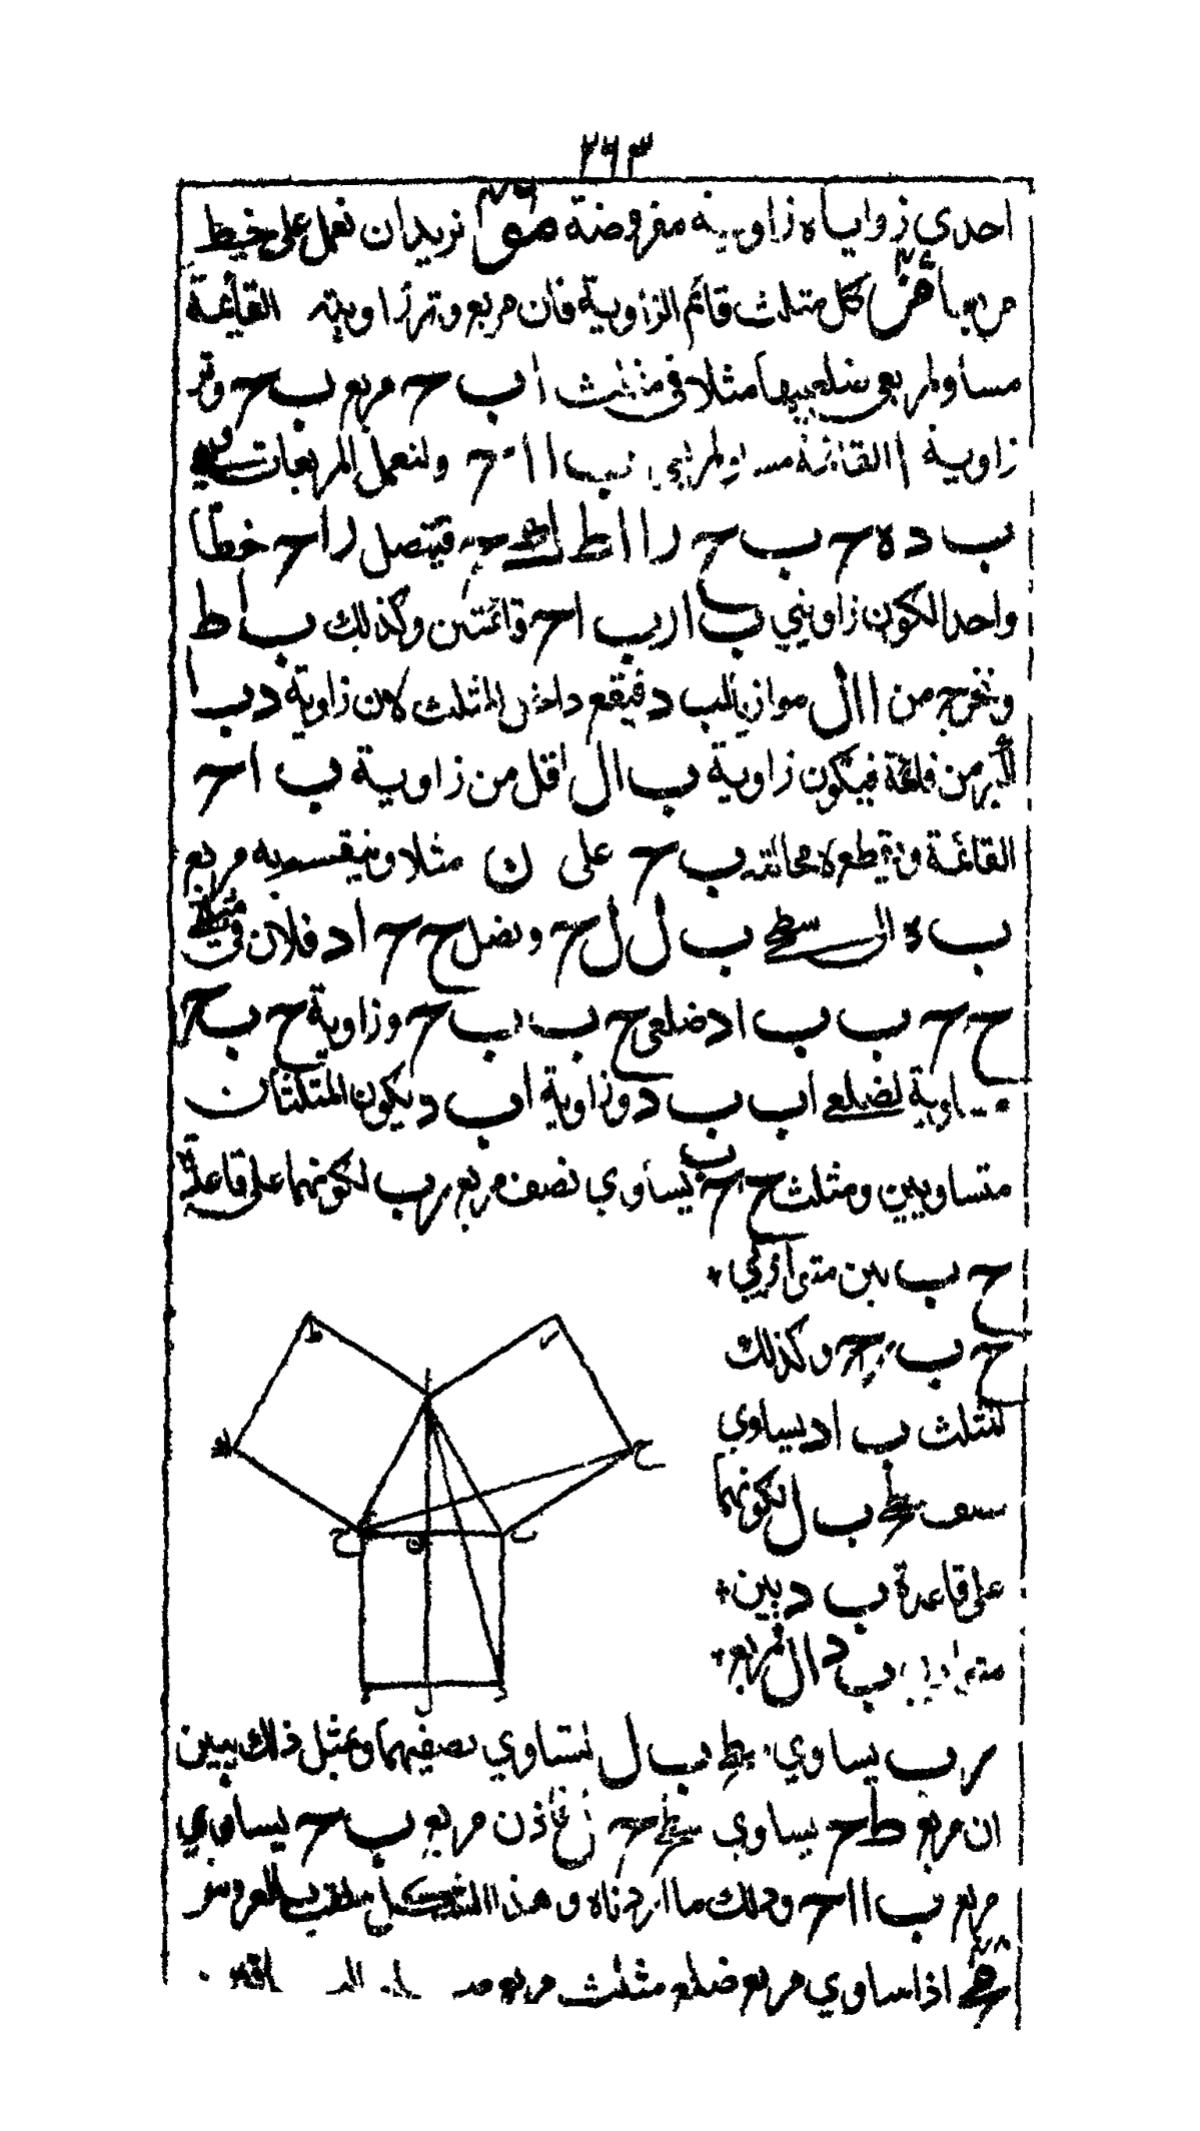 ٢٦٣
احدى زواياه زاوية مفروضة نريد ان نعمل على خط
مربعا كل مثلث قائم الزاوية فان مربع وتر زاويته القائمة
مساو لمربعي ضلعيها مثلا في مثلث ا ب ح مربع ب ح وتر
زاوية ا القائمة مساو لمربعي ب ا ا ح ولنعمل المربعات
ب د ه ح ب ح ر ا ا ط فيتصل ر ا ح خطا
واحدا لكون زاويتي ب ا ر ب ا ح قائمتين وكذلك ب ا ط
ونخرج من ا ا ل موازيا لب د فيقع داخل المثلث لان زاوية د ب ا
اكبر من قائمة فيكون زاوية ب ا ل اقل من زاوية ب ا ح
القائمة ويقطع لا محالة ب ح على ن مثلا وينقسم به مربع
ب ه الى سطحي ب ل ل ح ونصل ح ح ا د فلان في مثلثي
ح ح ب ب ا د ضلعي ح ب ب ح وزاوية ح ب ح
مساوية لضلعي ا ب ب د وزاوية ا ب د يكون المثلثان
متساويين ومثلث ح ح ب يساوي نصف مربع ر ب لكونهما على قاعدة
ح ب بين متوازيي
ح ب ر ح وكذلك
مثلث ب ا د يساوي
نصف سطح ب ل لكونهما
على قاعدة ب د بين
متوازيي ب د ا ل فمربع
ر ب يساوي سطح ب ل لتساوي نصفيهما وبمثل ذلك يبين
ان مربع ط ح يساوي سطح ح ل فاذن مربع ب ح يساوي
مربع ب ا ا ح وذلك ما اردناه وهذا الشكل يلقب بالعروس
اذا ساوي مربع ضلع مثلث مربع
ط
ر
ك
ح
ح
ن
ب
ه
ل
د